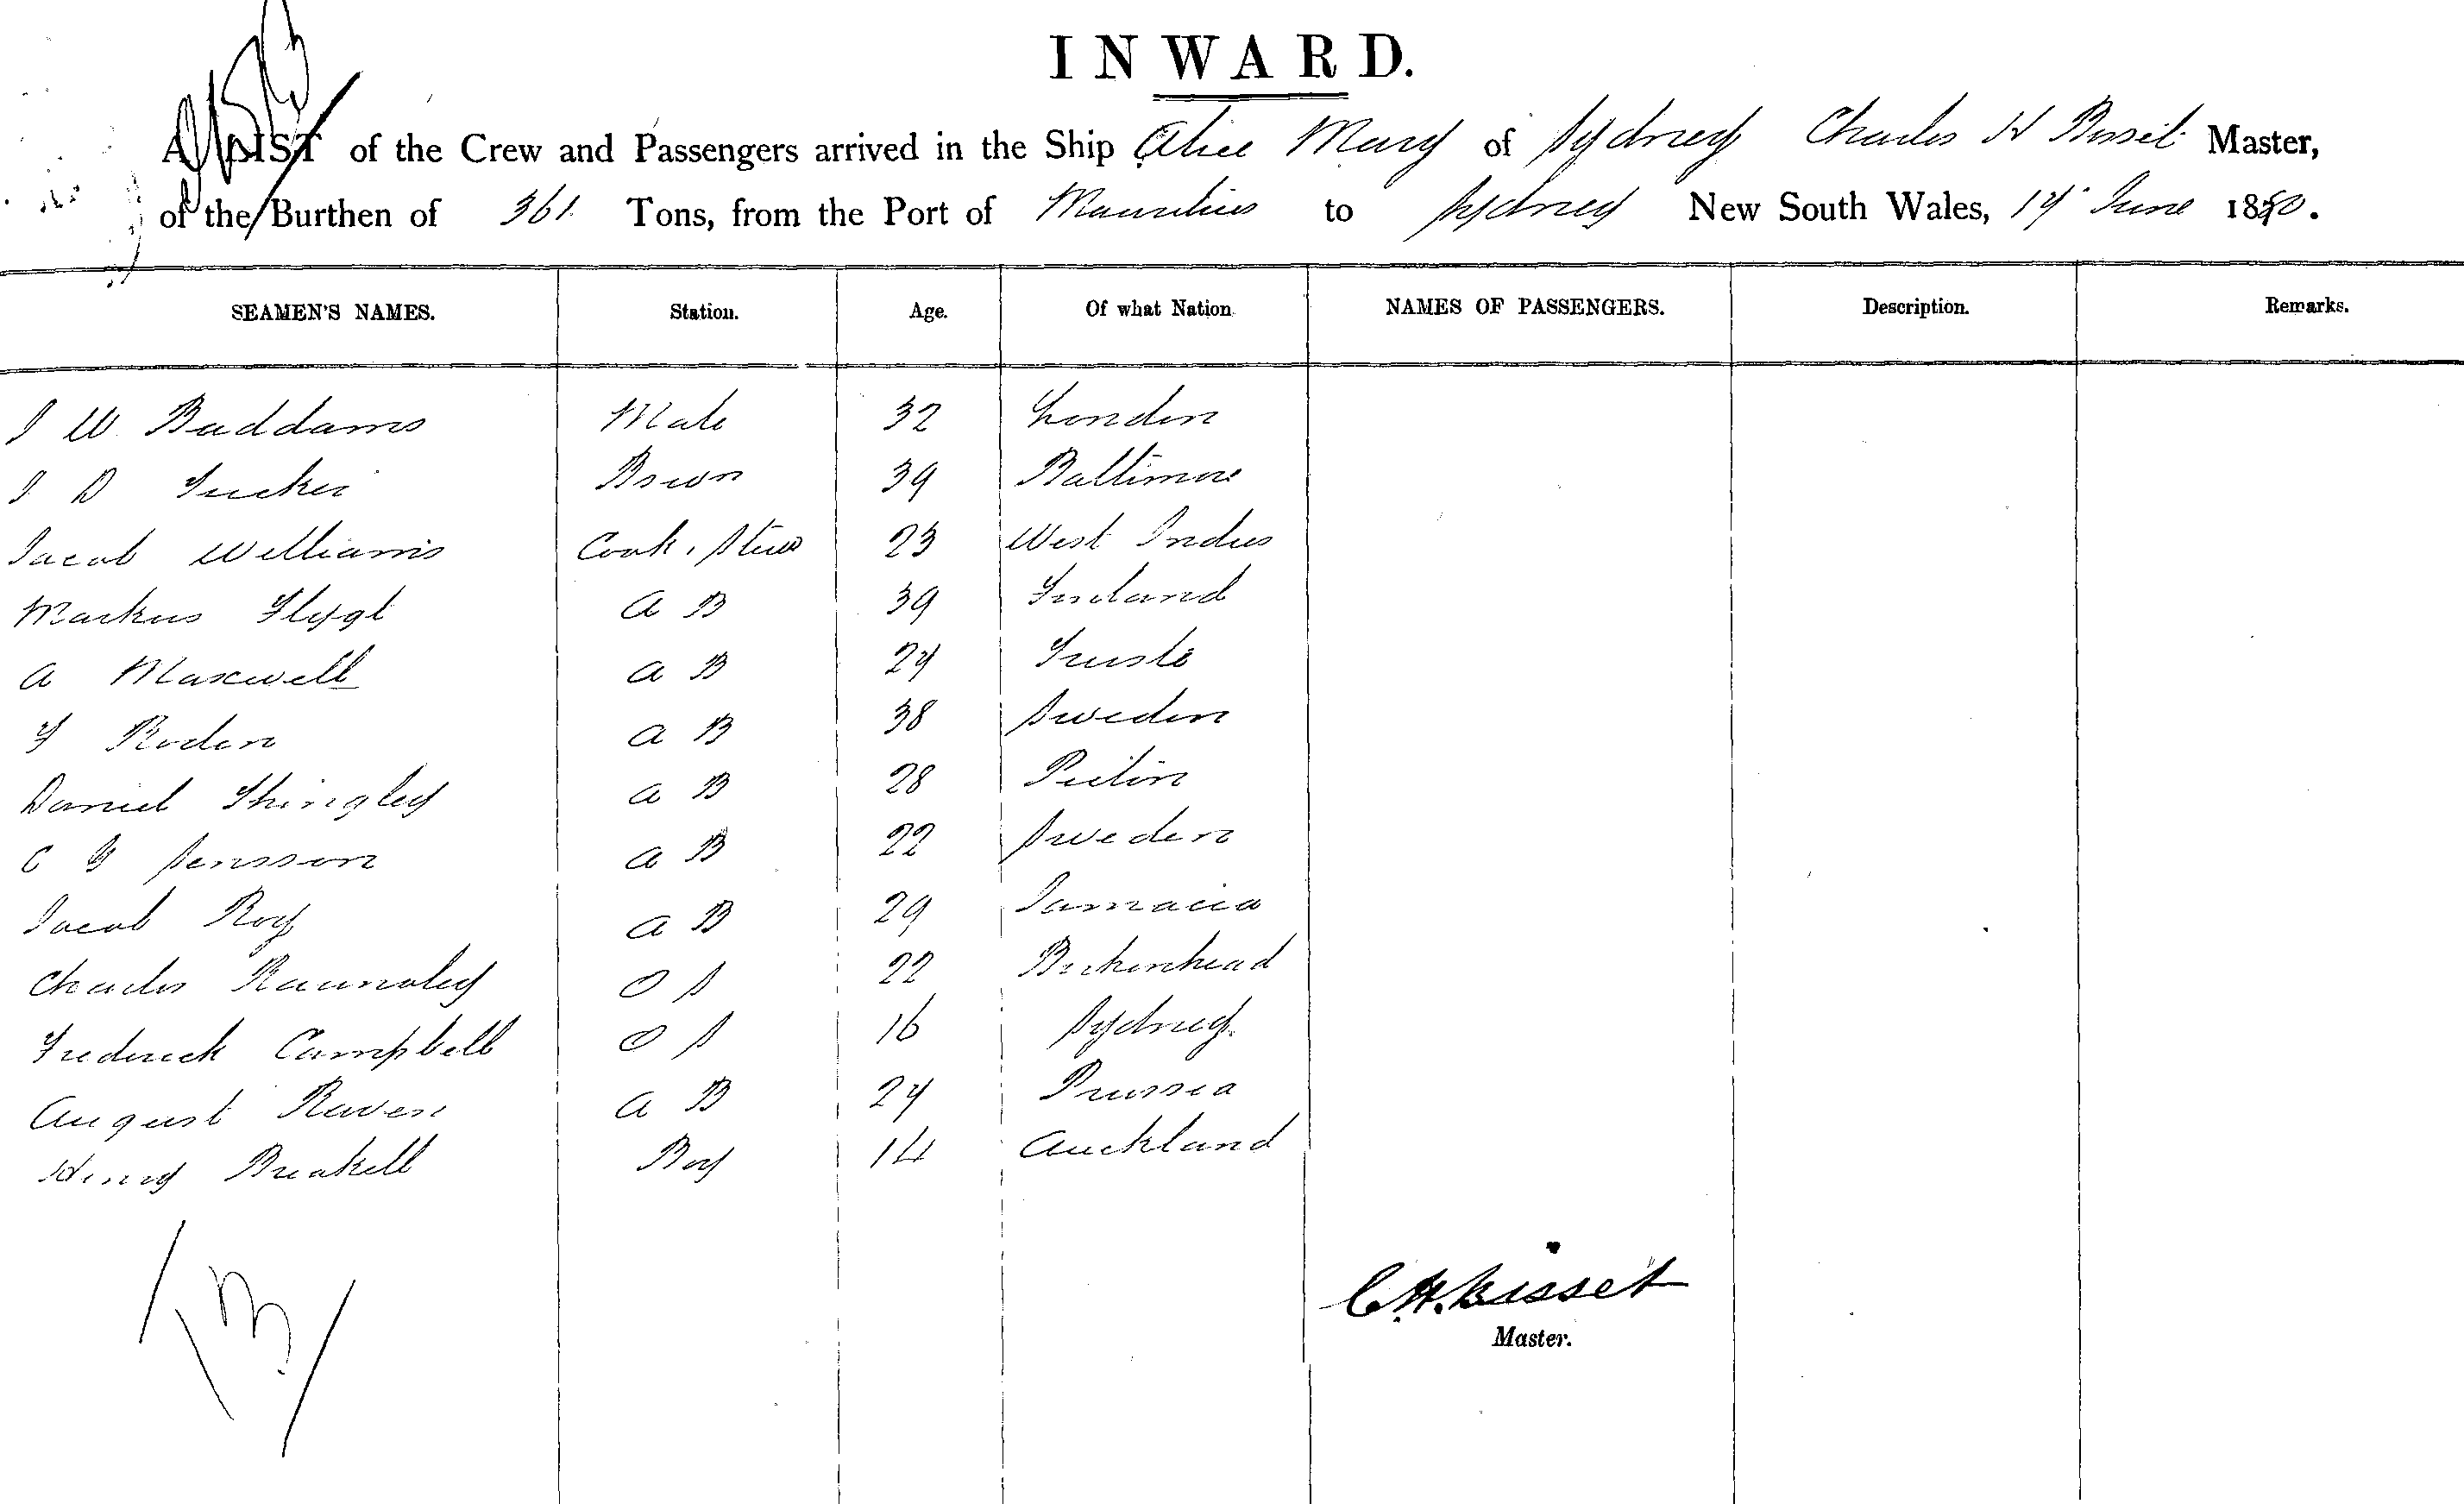 INWARD.
A LIST of the Crew and Passengers arrived in the Ship Alice Mary of Sydney Charles H Bisset Master,
of the Burthen of 361 Tons, from the Port of Mauritius to Sydney New South Wales, 14 June 1880.
SEAMEN'S NAMES. Station. Age. Of what Nation. NAMES OF PASSENGERS. Description. Remarks.
J W Baddams Mate 32 London
J D Tucker Bswn 39 Baltimore
Jacob Williams Cook. Stew 23 West Indies
Markus Flygt A B 39 Finland
A Maxwell A B 24 Trieste
F Roden A B 38 Sweden
Daniel Shingley A B 28
C G Sensson A B 22 Sweden
Jacob Roy A B 29 Jamacia
Charles O S 22 Birkenhead
Frederick Campbell O S 16 Sydney.
August Raven A B 24 Prussia
Henry Breakell Boy 14 Auckland
13
C.H. Bisset
Master.